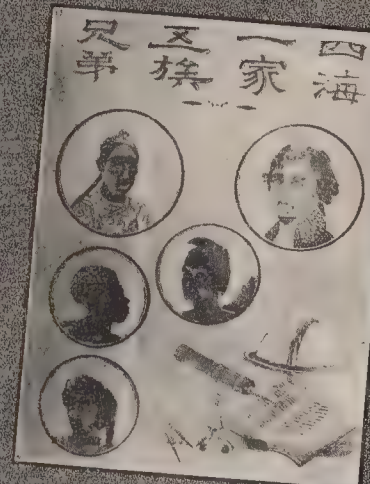 四海
一家
五族
兄弟